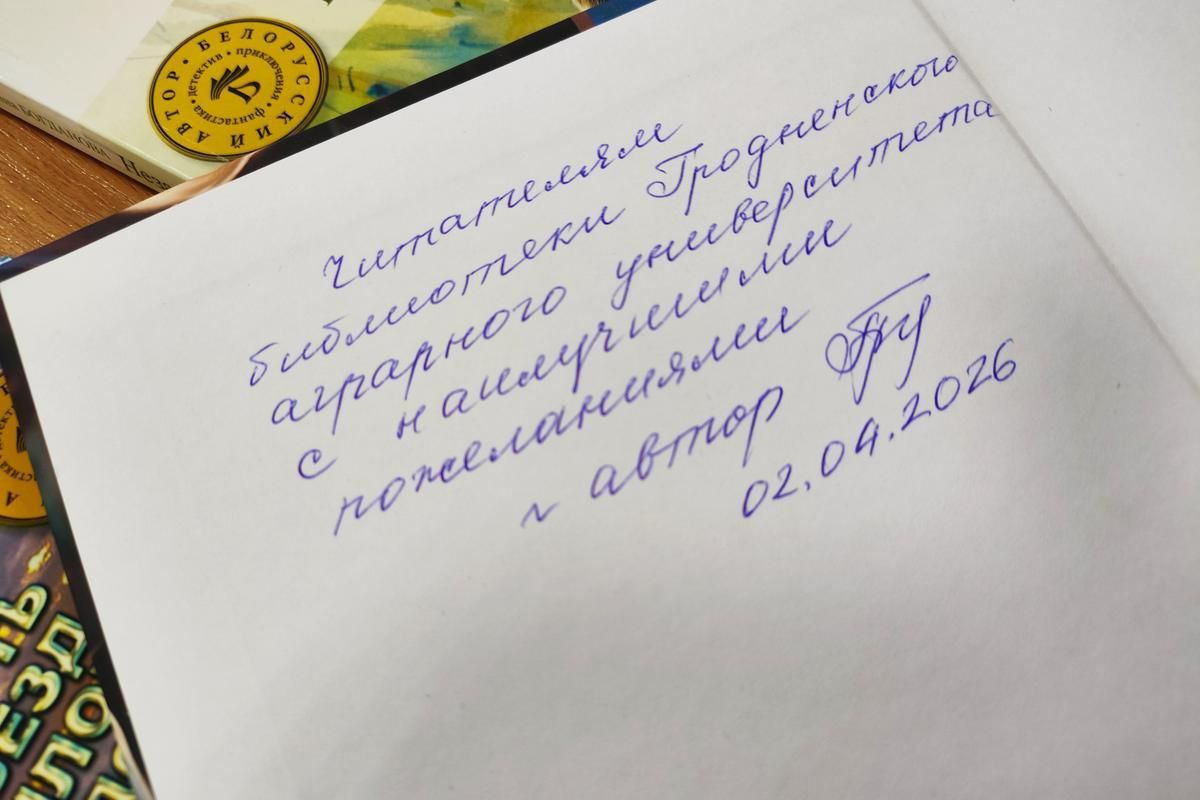 БЕЛОРУССКИЙ АВТОР
детектив • приключения • фантастика
БОГДАНОВА
Читателям
библиотеки Гродненского
аграрного университета
с наилучшими
пожеланиями
~ автор
02.04.2026